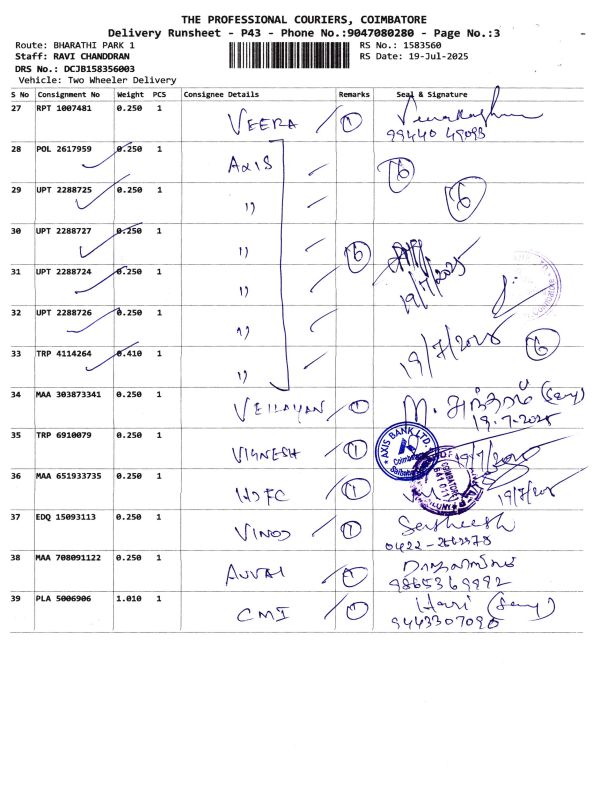 THE PROFESSIONAL COURIERS, COIMBATORE
Delivery Runsheet - P43 - Phone No.:9047080280 - Page No.:3
Route: BHARATHI PARK 1
RS No.: 1583560
Staff: RAVI CHANDDRAN
RS Date: 19-Jul-2025
DRS No.: DCJB158356003
Vehicle: Two Wheeler Delivery
S No Consignment No Weight PCS Consignee Details Remarks Seal & Signature
27 RPT 1007481 0.250 1 VEERA 1
99440 49093
28 POL 2617959 0.250 1 Axis 6
29 UPT 2288725 0.250 1 ") 6
30 UPT 2288727 0.250 1 ") 6
31 UPT 2288724 0.250 1 ") 19/7/2025
32 UPT 2288726 0.250 1 ")
33 TRP 4114264 0.410 1 ") 19/7/2025 6
34 MAA 303873341 0.250 1 VELLAYAN 1
19-7-2025
35 TRP 6910079 0.250 1 VIGNESH 1 19/7/2025
AXIS BANK LTD.
36 MAA 651933735 0.250 1 HDFC 1 19/7/205
37 EDQ 15093113 0.250 1 VINOD 1 Satheesh
38 MAA 708091122 0.250 1 AVVAI 1
9865369992
39 PLA 5006906 1.010 1 CMI 1 Hari
9443307095